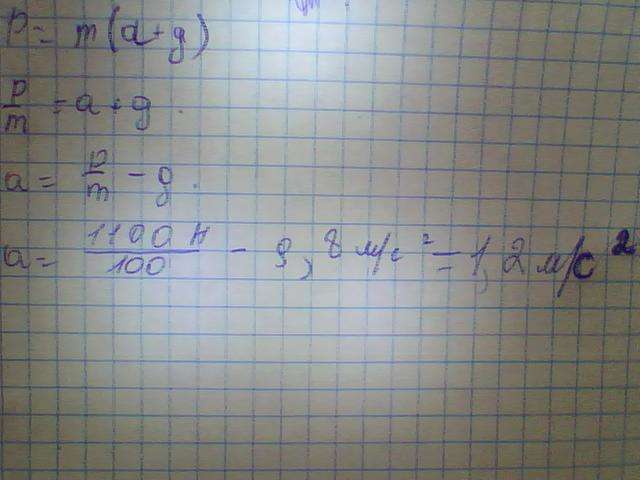 P = m(a+g)
P/m = a+g.
a = P/m - g.
a = 1100 Н/100 - 9,8 м/с² = 1,2 м/с²